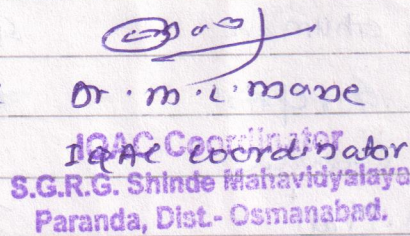 Dr. M. L. Mane
IQAC Coordinator
IQAC Coordinator
S.G.R.G. Shinde Mahavidyalaya
Paranda, Dist.- Osmanabad.